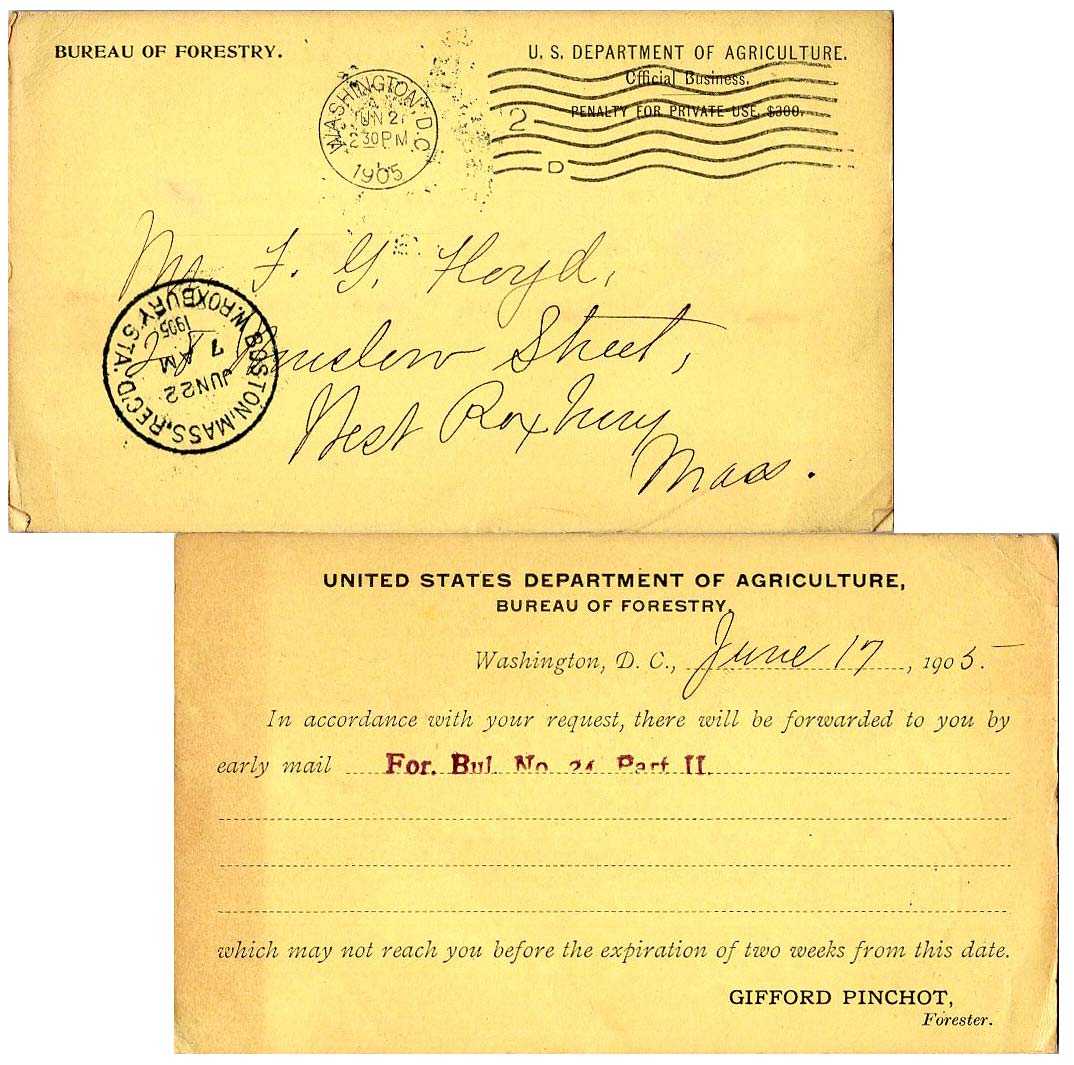 BUREAU OF FORESTRY.
U. S. DEPARTMENT OF AGRICULTURE.
Official Business.
PENALTY FOR PRIVATE USE, $300.
WASHINGTON, D.C.
JUN 21
2 30 PM
1905
2
D
Mr. F. G. Floyd,
Street,
West Roxbury
Mass.
BOSTON, MASS. REC'D.
W. ROXBURY STA.
JUN 22
7 AM
1905
UNITED STATES DEPARTMENT OF AGRICULTURE,
BUREAU OF FORESTRY,
Washington, D. C., June 17, 1905.
In accordance with your request, there will be forwarded to you by
early mail For. Bul. No. 24 Part II.
which may not reach you before the expiration of two weeks from this date.
GIFFORD PINCHOT,
Forester.